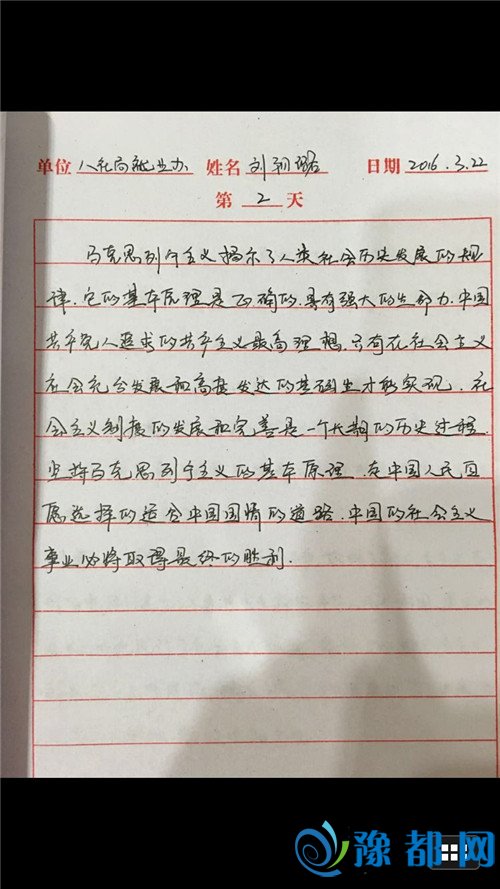 单位 人社局就业办 姓名 刘翔璐 日期 2016.3.22
第 2 天
马克思列宁主义揭示了人类社会历史发展的规
律,它的基本原理是正确的,具有强大的生命力.中国
共产党人追求的共产主义最高理想,只有在社会主义
社会充分发展和高度发达的基础上才能实现,社
会主义制度的发展和完善是一个长期的历史过程.
坚持马克思列宁主义的基本原理,走中国人民自
愿选择的适合中国国情的道路,中国的社会主义
事业必将取得最终的胜利.
豫都网